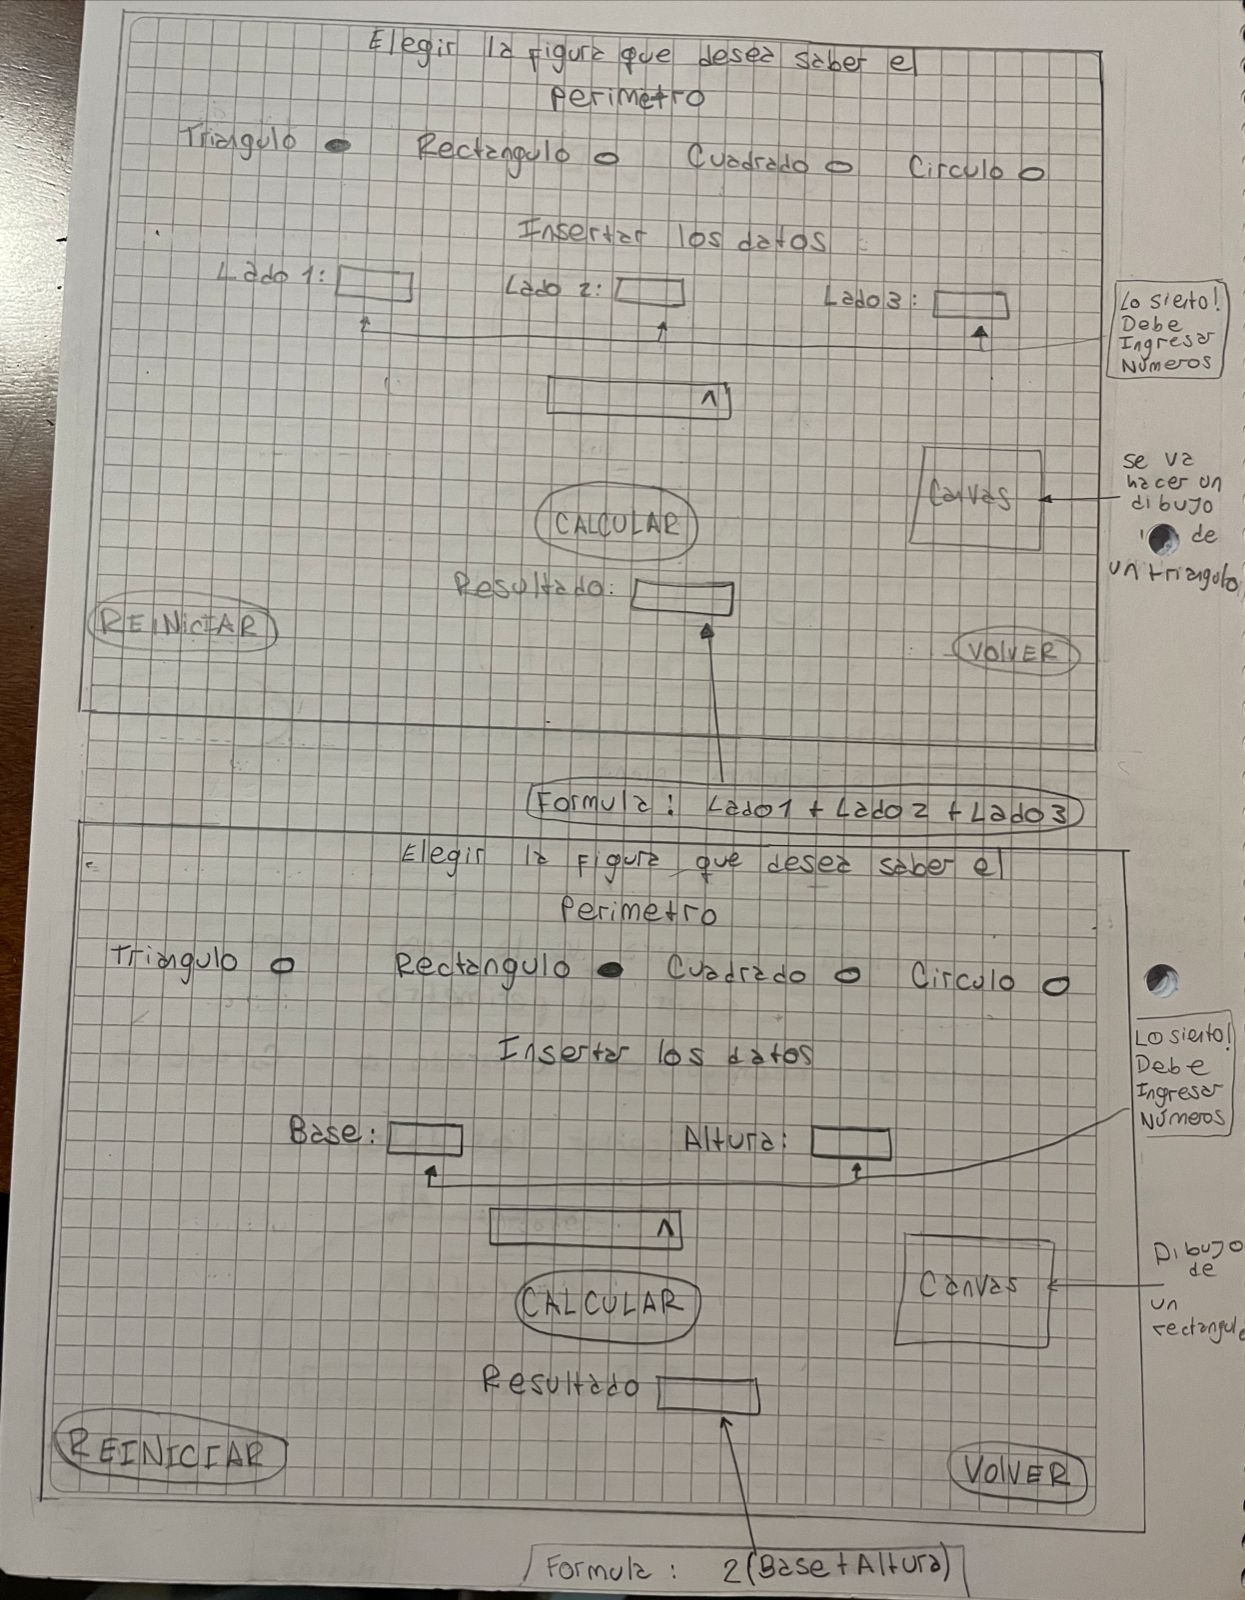 Elegir la figura que desea saber el
perimetro
Triangulo Rectangulo Cuadrado Circulo
Insertar los datos
Lado 1: Lado 2: Lado 3:
Lo siento!
Debe
Ingresar
Números
^
Canvas
se va
hacer un
dibujo
de
un triangulo
CALCULAR
Resultado:
REINICIAR
VOLVER
Formula: Lado1 + Lado2 + Lado3
Elegir la figura que desea saber el
Perimetro
Triangulo Rectangulo Cuadrado Circulo
Insertar los datos
Lo siento!
Debe
Ingresar
Números
Base: Altura:
^
Canvas
Dibujo
de
un
rectangulo
CALCULAR
Resultado
REINICIAR
VOLVER
Formula: 2(Base+Altura)